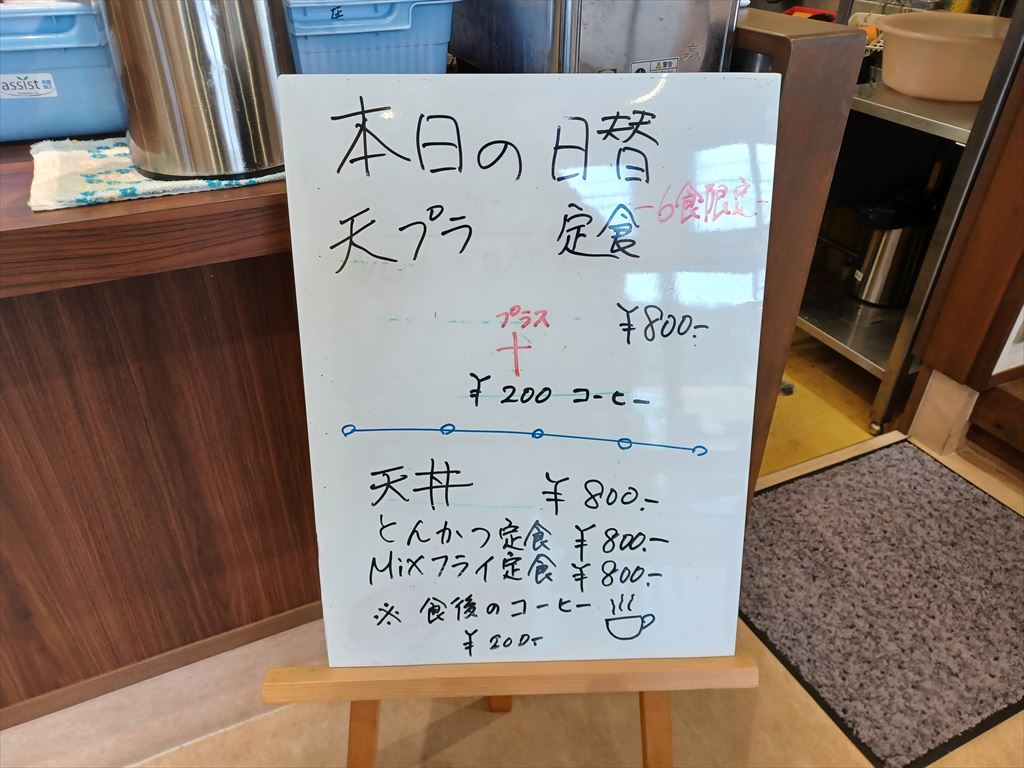 assist
圧
警告
本日の日替
-6食限定-
天プラ 定食
¥800.-
プラス
+
¥200 コーヒー
天丼 ¥800.-
とんかつ定食 ¥800.-
MiXフライ定食 ¥800.-
※食後のコーヒー
¥200.-